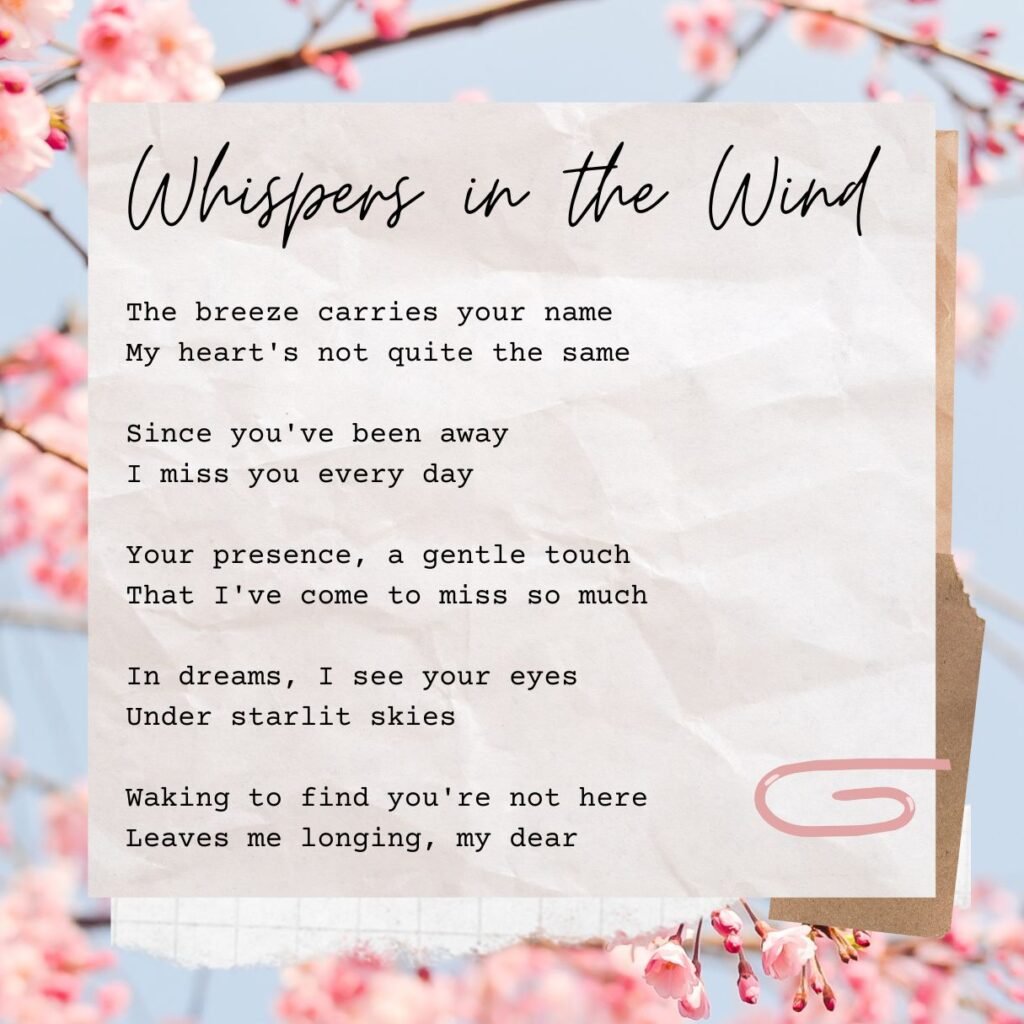 Whispers in the Wind
The breeze carries your name
My heart's not quite the same
Since you've been away
I miss you every day
Your presence, a gentle touch
That I've come to miss so much
In dreams, I see your eyes
Under starlit skies
Waking to find you're not here
Leaves me longing, my dear